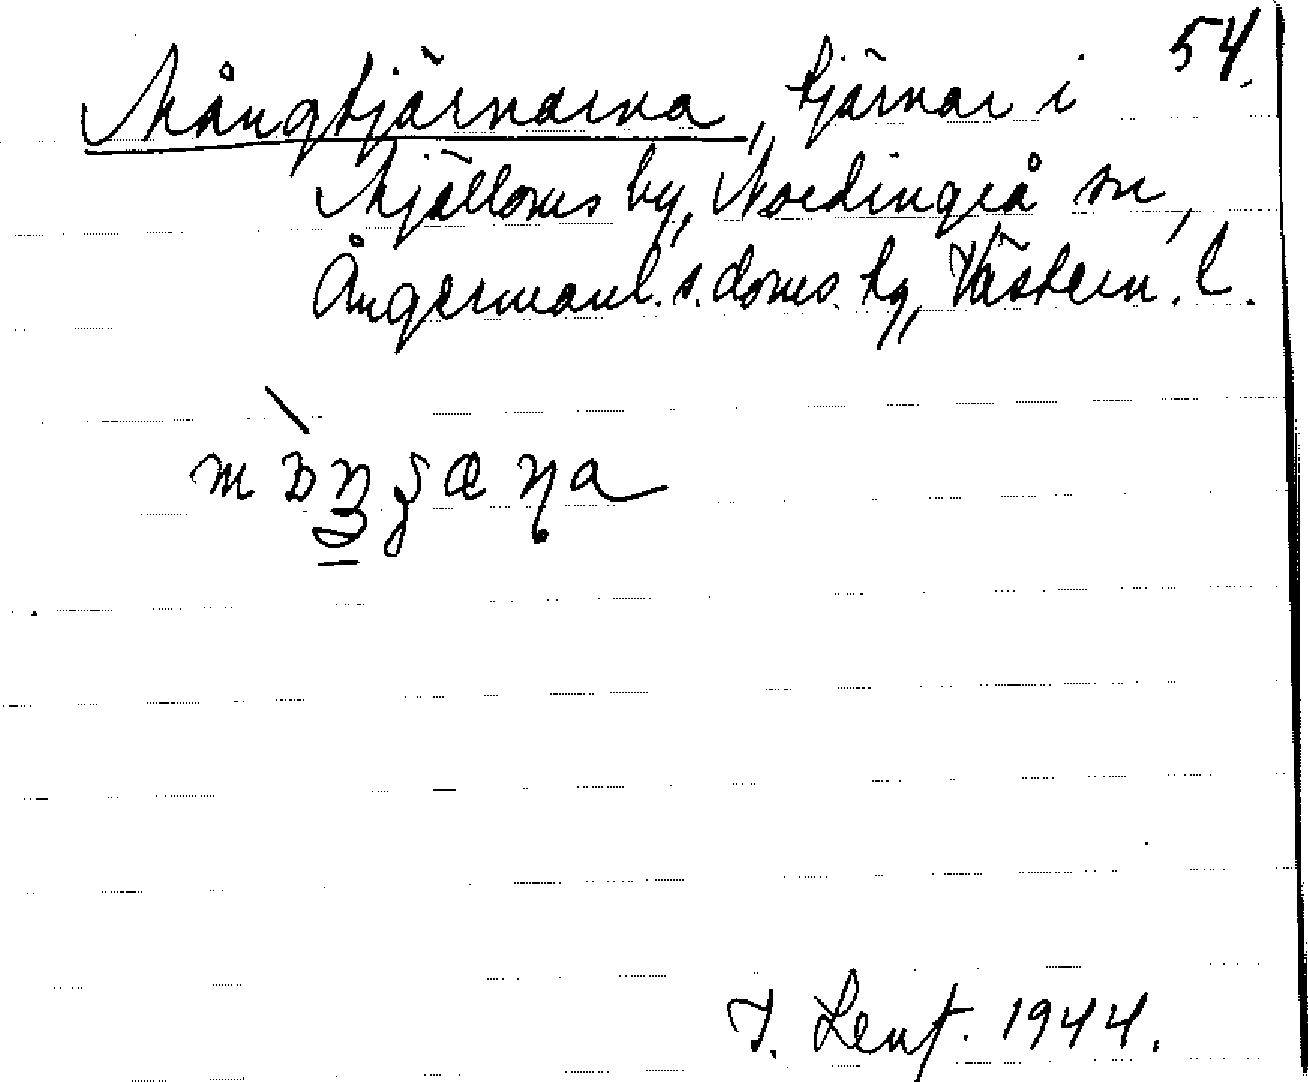 54.
Mångtjärnarna, tjärnar i
Mjälloms by, Nordingrå sn,
Ångermanl. s. doms. tg, Västern. l.
J. Lenf. 1944.